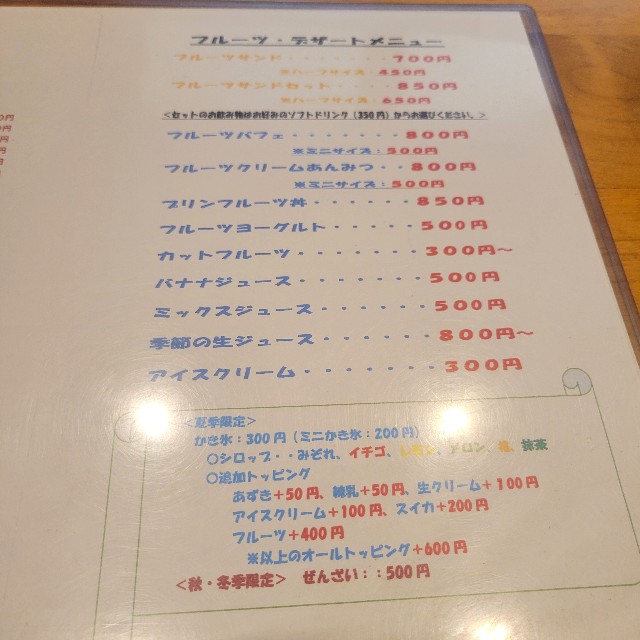 フルーツ・デザートメニュー
フルーツサンド・・・・・・・700円
※ハーフサイズ：450円
フルーツサンドセット・・・・850円
※ハーフサイズ：650円
＜セットのお飲み物はお好みのソフトドリンク（350円）からお選びください。＞
フルーツパフェ・・・・・・・800円
※ミニサイズ：500円
フルーツクリームあんみつ・・800円
※ミニサイズ：500円
プリンフルーツ丼・・・・・・850円
フルーツヨーグルト・・・・・500円
カットフルーツ・・・・・・・300円～
バナナジュース・・・・・・・500円
ミックスジュース・・・・・・500円
季節の生ジュース・・・・・・800円～
アイスクリーム・・・・・・・300円
＜夏季限定＞
かき氷：300円（ミニかき氷：200円）
○シロップ・・みぞれ、イチゴ、レモン、メロン、桃、抹茶
○追加トッピング
あずき+50円、練乳+50円、生クリーム+100円
アイスクリーム+100円、スイカ+200円
フルーツ+400円
※以上のオールトッピング+600円
＜秋・冬季限定＞ ぜんざい：：500円